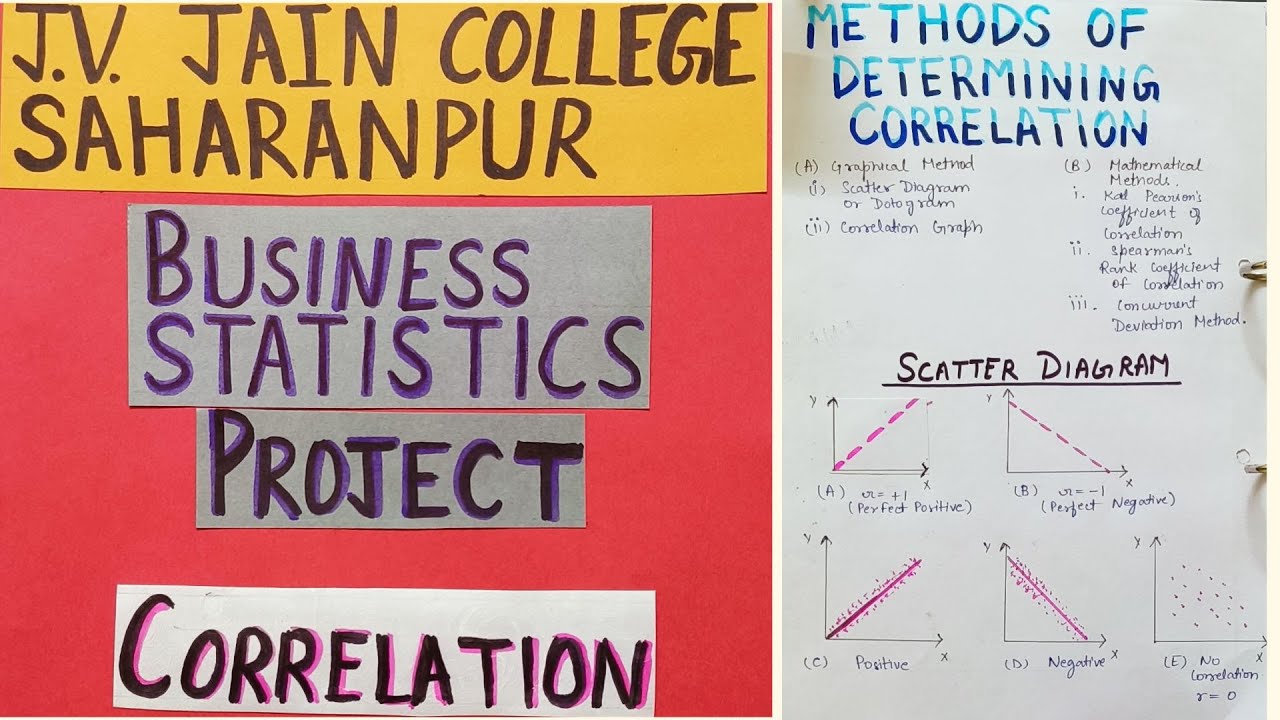 J.V. JAIN COLLEGE
SAHARANPUR
BUSINESS
STATISTICS
PROJECT
CORRELATION
METHODS OF
DETERMINING
CORRELATION
(A) Graphical Method
i) Scatter Diagram
or Dotogram
(ii) Correlation Graph
(B) Mathematical
Methods.
i. Karl Pearson's
Coefficient of
Correlation
ii. Spearman's
Rank Coefficient
of Correlation
iii. Concurrent
Deviation Method.
SCATTER DIAGRAM
Y
X
(A) r = +1
(Perfect Positive)
Y
X
(B) r = -1
(Perfect Negative)
Y
X
(C) Positive
Y
X
(D) Negative
Y
X
(E) No
Correlation
r = 0